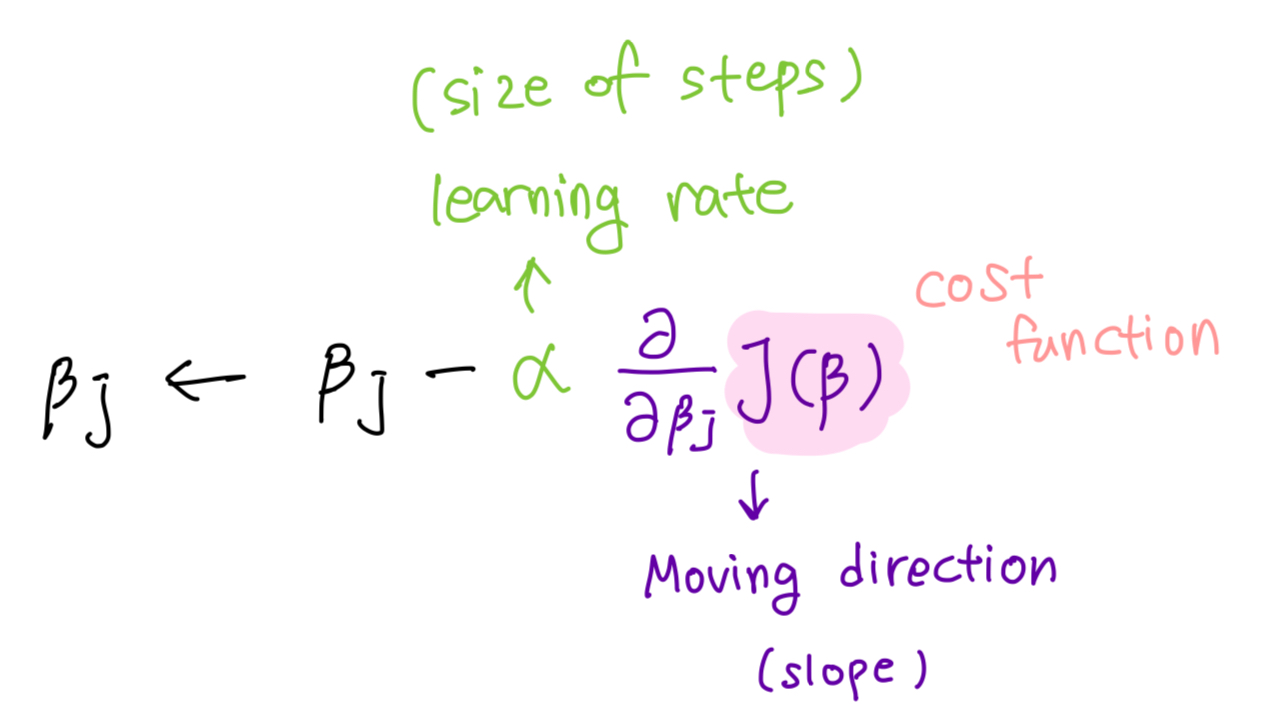 (size of steps)
learning rate
↑
cost
function
βj ← βj - α ∂/∂βj J(β)
↓
Moving direction
(slope)